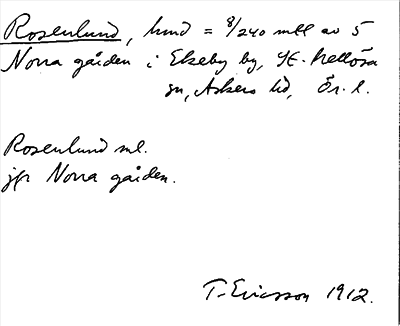 Rosenlund, lund = 8/240 mtl av 5
Norra gården i Ekeby by, St. Mellösa
sn, Askers hd, Ör. l.
Rosenlund ml.
jfr Norra gården.
T. Ericsson 1912.